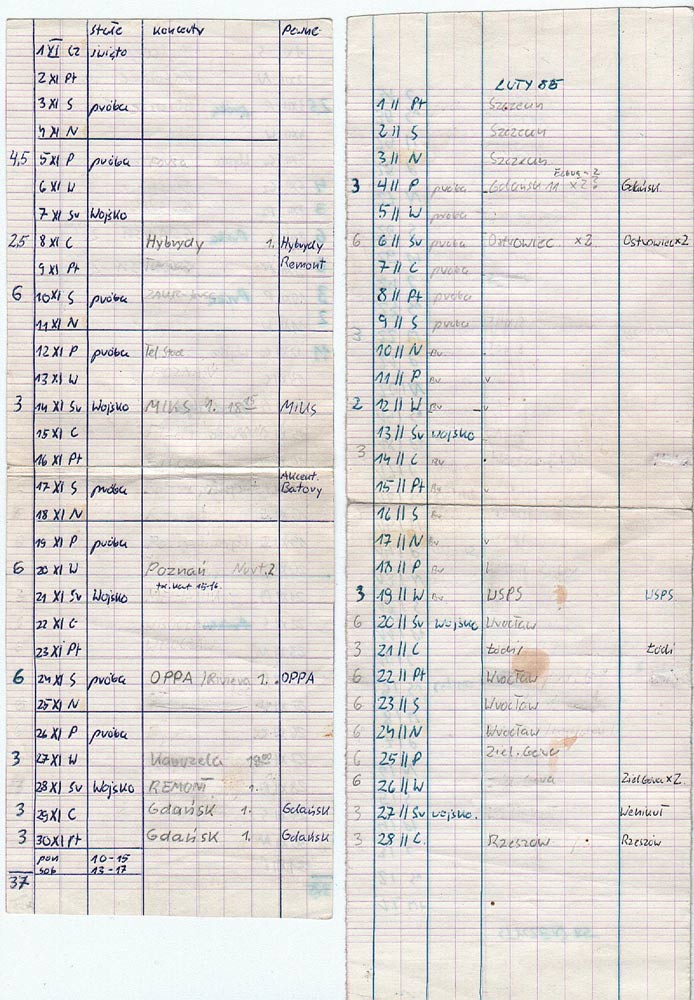 stałe koncerty pewne
1 XI Cz święto
2 XI Pt
3 XI S próba
4 XI N
4,5 5 XI P próba
6 XI W
7 XI Śr Wojsko
2,5 8 XI C Hybrydy 1. Hybrydy
9 XI Pt Remont
6 10 XI S próba
11 XI N
12 XI P próba Tel.
13 XI W
3 14 XI Śr Wojsko MIKS 1. 18 15 MIKS
15 XI C
16 XI Pt
Akcent.
17 XI S próba Batory
18 XI N
19 XI P próba
6 20 XI W Poznań Nurt.2
21 XI Śr Wojsko
22 XI C
23 XI Pt
6 24 XI S próba OPPA /Riviera 1. OPPA
25 XI N
26 XI P próba
3 27 XI W 18 00
28 XI Śr Wojsko REMONT 1.
3 29 XI C Gdańsk 1. Gdańsk
3 30 XI Pt Gdańsk 1. Gdańsk
pon 10-15
sob 13-17
37
LUTY 85
1 II Pt Szczecin
2 II S Szczecin
3 II N Szczecin
3 4 II P próba Gdańsk 11 x2? Gdańsk
5 II W próba
6 6 II Śr próba Ostrowiec x2 Ostrowiec x2
7 II C próba
8 II Pt próba
9 II S próba
3
10 II N
11 II P
2 12 II W
13 II Śr wojsko
3 14 II C
15 II Pt
16 II S
17 II N
18 II P
3 19 II W USPS USPS
6 20 II Śr wojsko Wrocław
3 21 II C Łódź Łódź
6 22 II Pt Wrocław
6 23 II S Wrocław
6 24 II N Wrocław
6 25 II P Ziel. Góra
6 26 II W Ziel Góra x2.
3 27 II Śr wojsko.
3 28 II C. Rzeszów Rzeszów